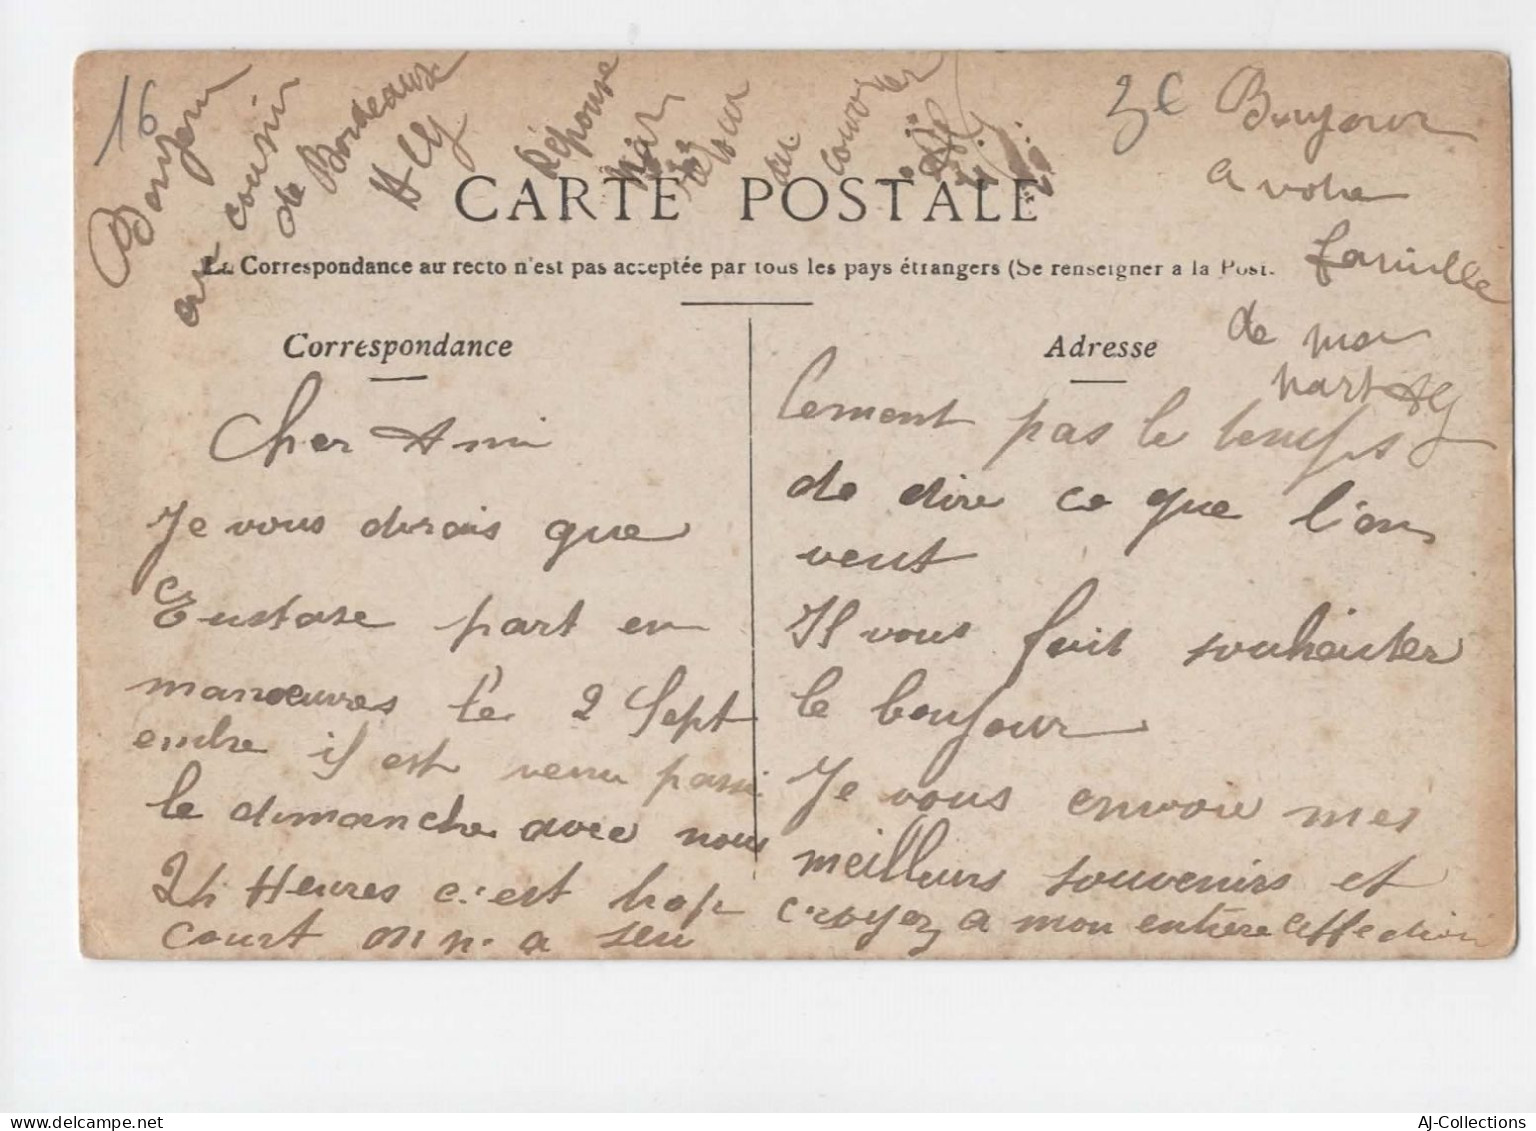 16
Bonjour
au cousin
de Bordeaux
AG
Réponse
par
retour
du
courrier
3€
Bonjour
a votre
famille
de ma
part AG
CARTE POSTALE
La Correspondance au recto n'est pas acceptée par tous les pays étrangers (Se renseigner a la Post.
Correspondance
Cher Ami
Je vous dirais que
Eustase part en
manœuvres le 2 Sept
embre il est venu passé
le dimanche avec nous
24 Heures c'est trop
court on n'a seu
Adresse
lement pas le temps
de dire ce que l'on
veut
Il vous fait souhaiter
le bonjour
Je vous envoie mes
meilleurs souvenirs et
croyez a mon entière affection
AJ-Collections
www.delcampe.net